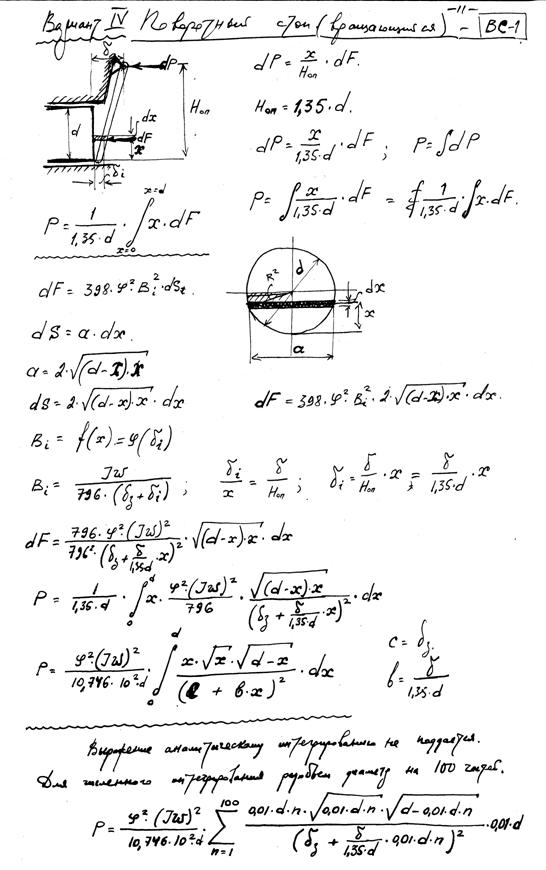 - 11 -
Вариант IV Поворотный стоп (вращающийся) - ВС-1
δ dP
dP = x/Hоп · dF.
Hоп
Hоп = 1,35 · d.
d dx dF x
dP = x/1,35·d · dF ; P = ∫dP
δi
P = 1/1,35·d · ∫ x=0 x=d x · dF
P = ∫ x/1,35·d · dF = 1/1,35·d · ∫x·dF.
dF = 398 · φ² · Bi² · dS
R² d dx x a
dS = a · dx.
a = 2·√(d-x)·x
dS = 2·√(d-x)·x · dx
dF = 398 · φ² · Bi² · 2·√(d-x)·x · dx.
Bi = f(x) = φ(δi)
Bi = JW/796·(δз+δi) ; δi/x = δ/Hоп ; δi = δ/Hоп · x ; = δ/1,35·d · x
dF = 796·φ²·(JW)²/796²·(δз + δ/1,35d ·x)² · √(d-x)·x · dx
P = 1/1,35·d · ∫ 0 d x · φ²·(JW)²/796 · √(d-x)·x/(δз + δ/1,35·d ·x)² · dx
P = φ²·(JW)²/10,746·10²·d · ∫ 0 d x·√x·√d-x/(c + b·x)² · dx
c = δз.
b = δ/1,35·d
Выражение аналитическому интегрированию не поддается.
Для численного интегрирования разобьем диаметр на 100 частей.
P = φ²·(JW)²/10,746·10²·d · ∑ n=1 100 0,01·d·n·√0,01·d·n·√d-0,01·d·n/(δз + δ/1,35·d ·0,01·d·n)² ·0,01·d